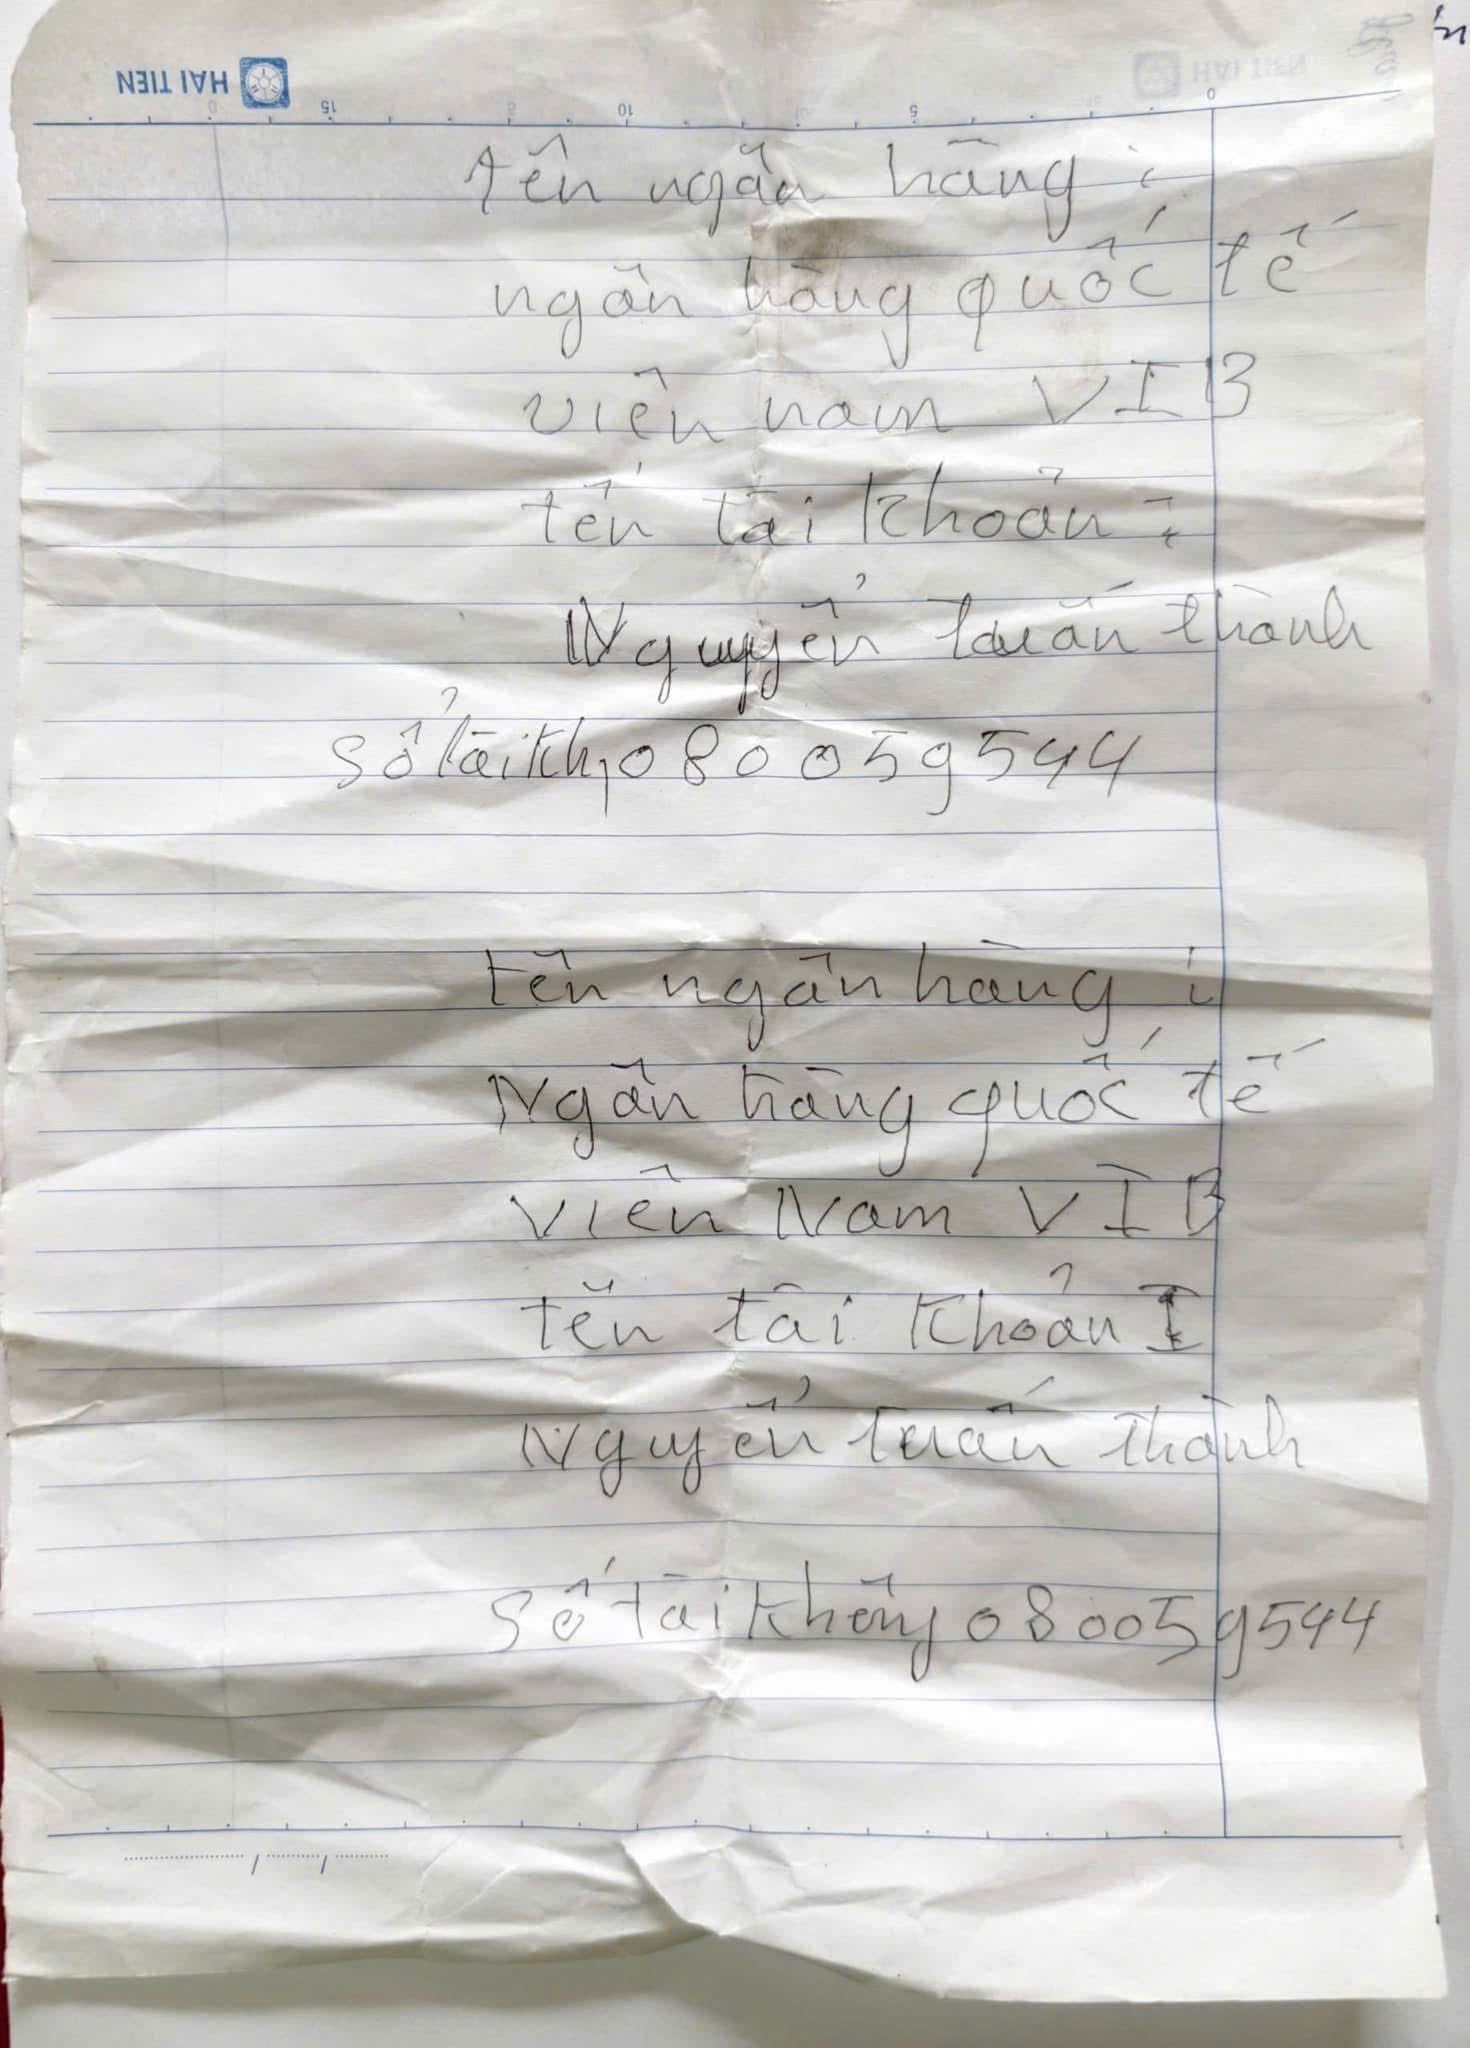 HẢI TIẾN
0 5 10 15
tên ngân hàng :
ngân hàng quốc tế
viên nam VIB
tến tài khoản :
Nguyyển tuấn thành
Số tài kh, 080059544
tên ngân hàng :
Ngân hàng quốc tế
viên Nam VIB
tên tài khoản I
Nguyển tuấn thành
Số tài không 080059544